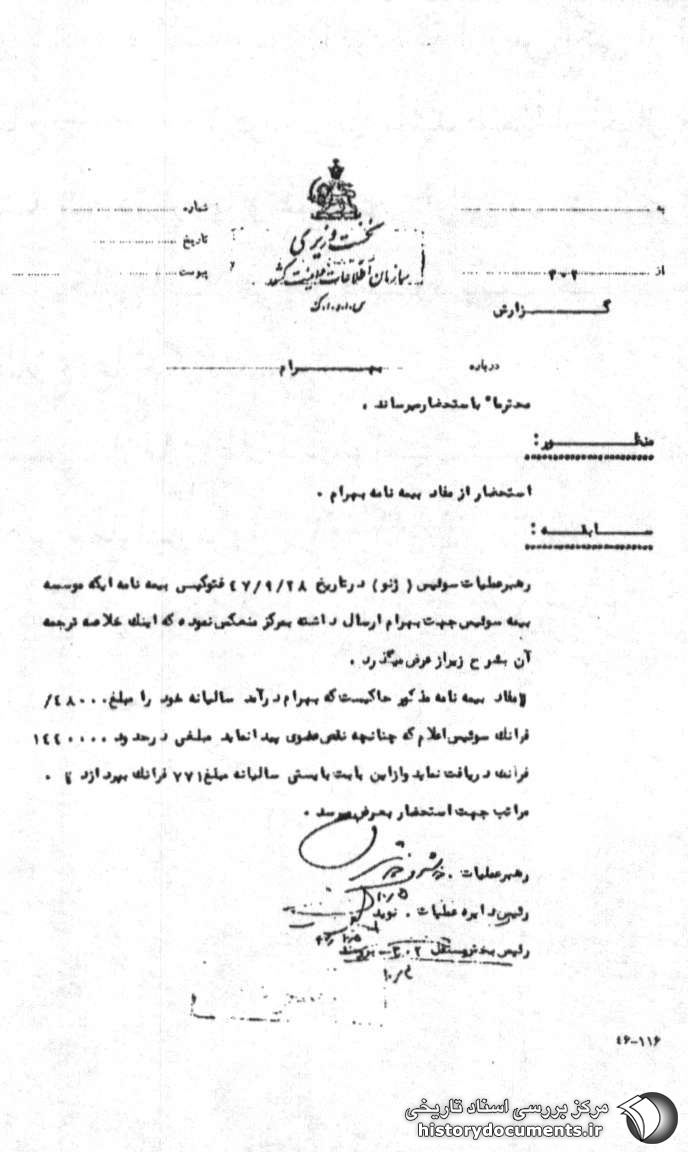 نخست وزیری
سازمان اطلاعات و امنیت کشور
س.ا.و.ا.ک
به
از ۳۰۲
شماره
تاریخ
پیوست
گزارش
درباره بهرام
محترما" باستحضار میرساند .
منظور :
استحضار از مفاد بیمه نامه بهرام .
سابقه :
رهبر عملیات سوئیس ( ژنو ) در تاریخ ۴۷/۹/۲۸ فتوکپی بیمه نامه ایکه موسسه
بیمه سوئیس جهت بهرام ارسال داشته بمرکز منعکس نموده که اینک خلاصه ترجمه
آن بشرح زیر از عرض میگذرد .
" مفاد بیمه نامه مذکور حاکیست که بهرام درآمد سالیانه خود را مبلغ ۴۸۰۰۰/
فرانک سوئیس اعلام که چنانچه نقص عضوی پیدا نماید مبلغی در حدود ۱۴۴۰۰۰۰
فرانک دریافت نماید و از این بابت بایستی سالیانه مبلغ ۷۷۱ فرانک بپردازد " .
مراتب جهت استحضار بعرض میرسد .
رهبر عملیات .
۱۰/۵
رئیس دایره عملیات . نوید
رئیس بخش مستقل ۳۰۲ -
۴۶-۱۱۶
مرکز بررسی اسناد تاریخی
historydocuments.ir